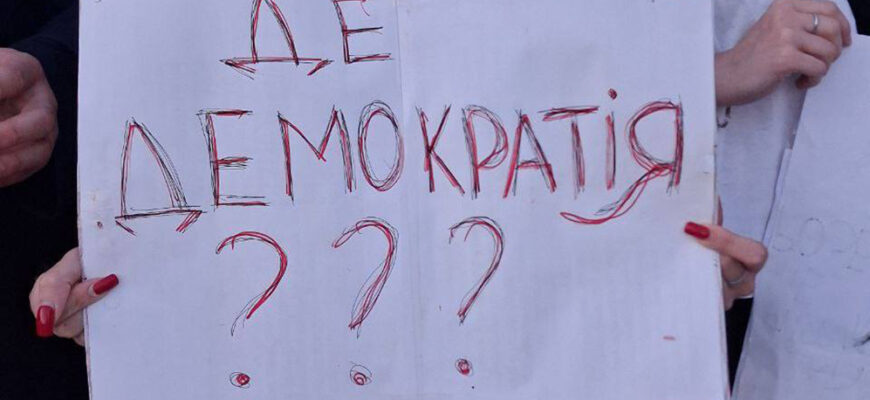 ДЕ
ДЕМОКРАТІЯ
???